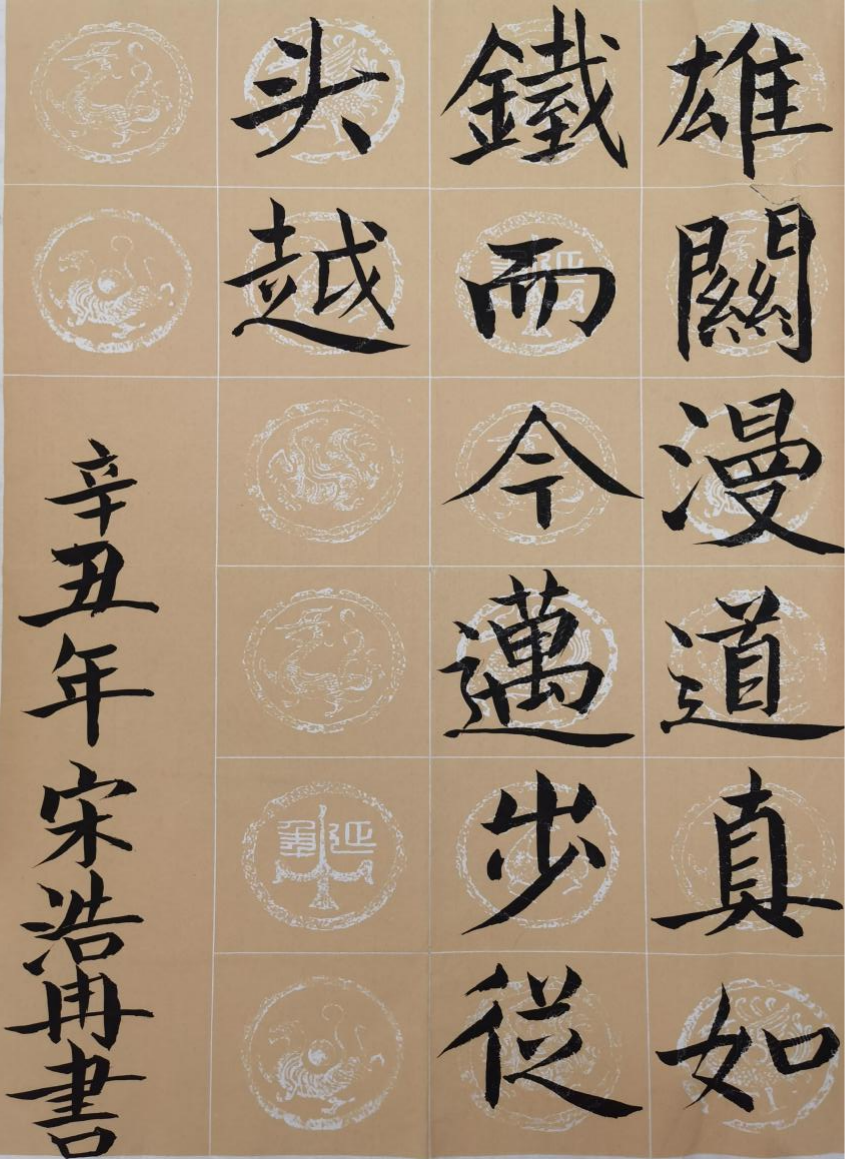 雄關漫道真如
鐵而今邁步從
头越
辛丑年宋浩冉書